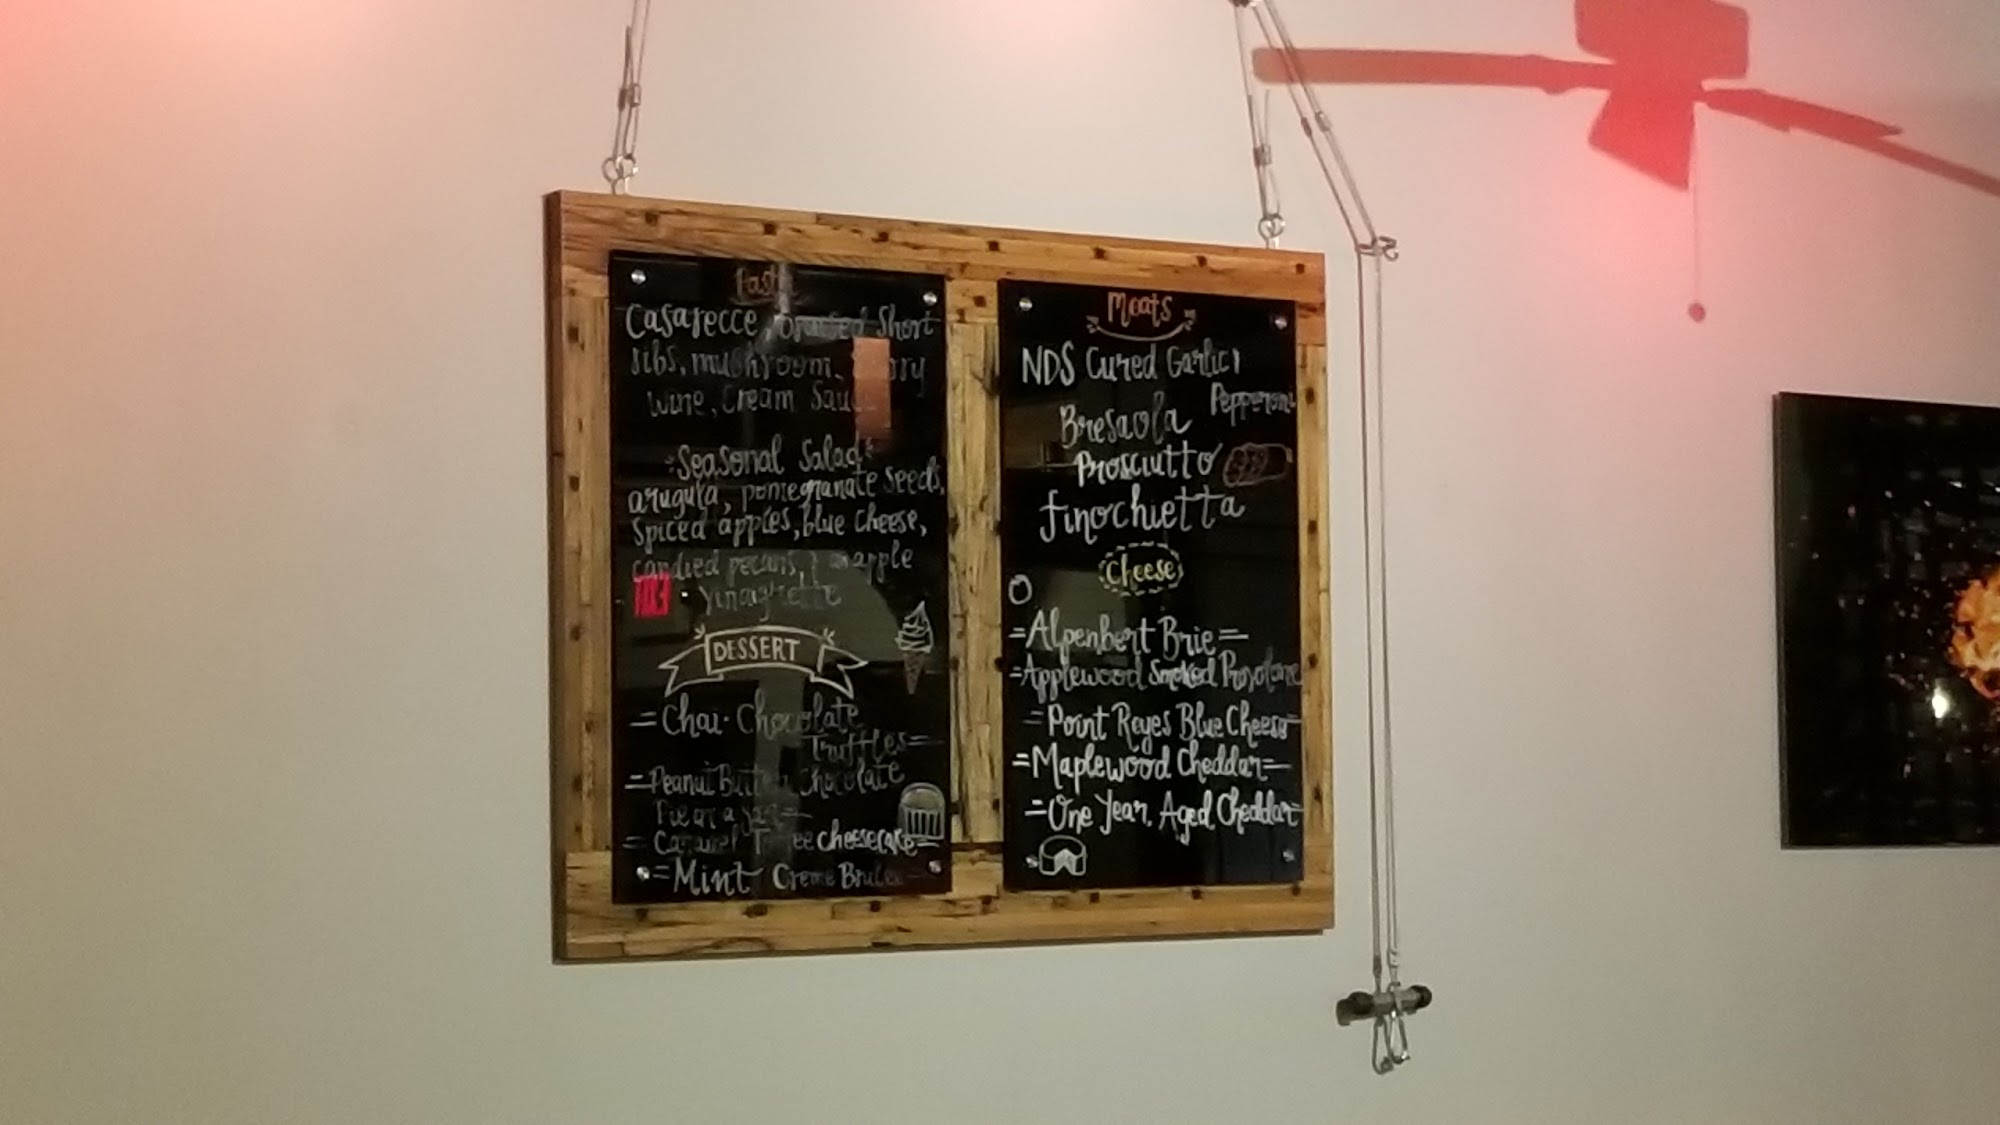 Pasta
Casarecce, braised Short
ribs, mushroom,
wine, cream Sauce
Seasonal Salad
arugula, pomegranate seeds,
Spiced apples, blue cheese,
candied pecans,
Vinaigrette
DESSERT
=Chai-Chocolate
Truffles=
=Peanut Butter Chocolate
Pie in a jar=
=Caramel Toffee cheesecake=
=Mint Creme Brulee
Meats
NDS Cured Garlic
Pepperoni
Bresaola
Prosciutto
finochietta
Cheese
=Alpenbert Brie=
=Applewood Smoked Provolone
=Point Reyes Blue Cheese=
=Maplewood Cheddar=
=One Year, Aged Cheddar=